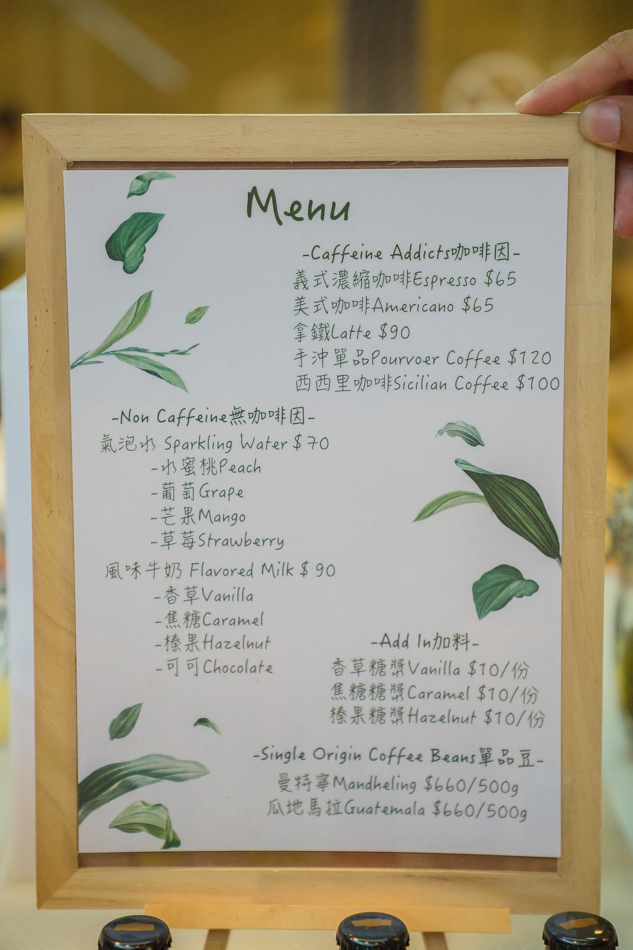 Menu
-Caffeine Addicts咖啡因-
義式濃縮咖啡Espresso $65
美式咖啡Americano $65
拿鐵Latte $90
手沖單品Pourvoer Coffee $120
西西里咖啡Sicilian Coffee $100
-Non Caffeine無咖啡因-
氣泡水 Sparkling Water $70
-水蜜桃Peach
-葡萄Grape
-芒果Mango
-草莓Strawberry
風味牛奶 Flavored Milk $ 90
-香草Vanilla
-焦糖Caramel
-榛果Hazelnut
-可可Chocolate
-Add In加料-
香草糖漿Vanilla $10/份
焦糖糖漿Caramel $10/份
榛果糖漿Hazelnut $10/份
-Single Origin Coffee Beans單品豆-
曼特寧Mandheling $660/500g
瓜地馬拉Guatemala $660/500g